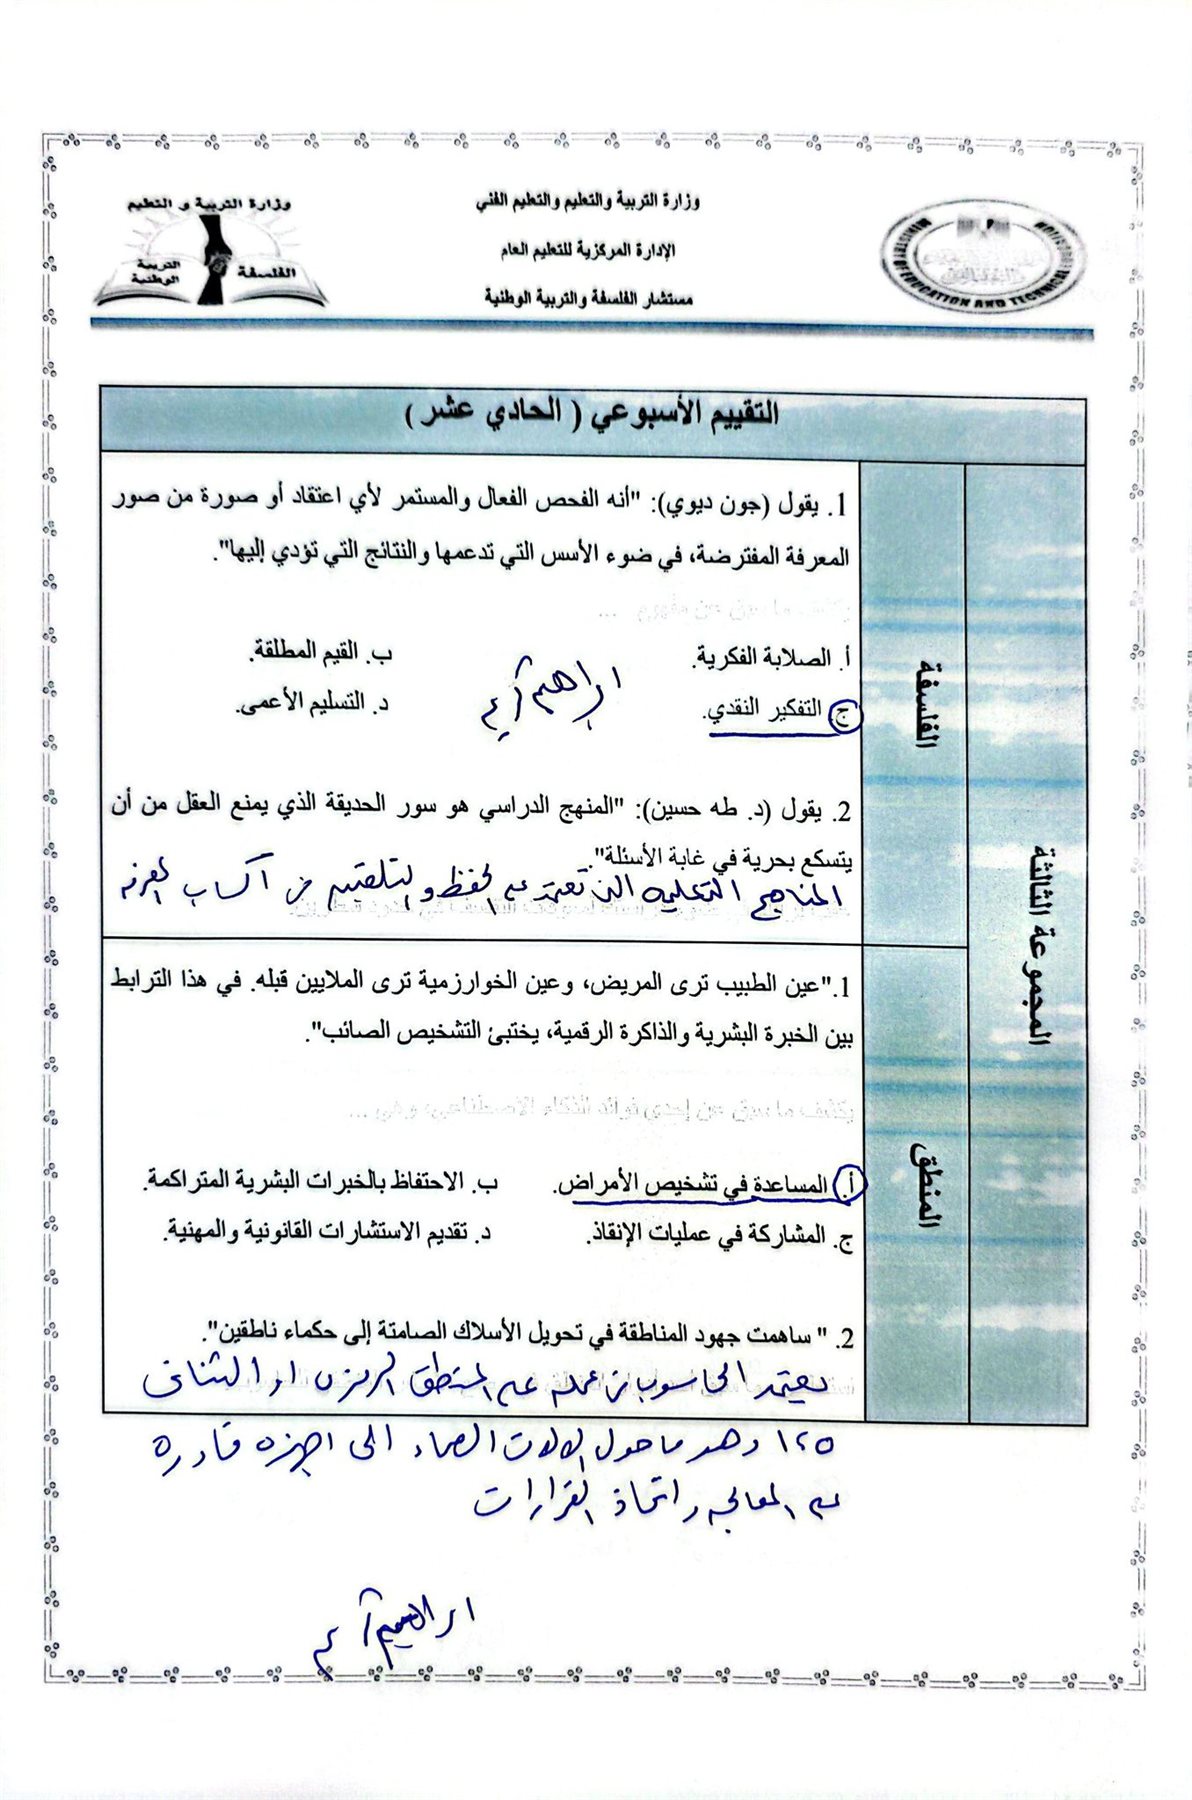 وزارة التربية و التعليم
الفلسفة
التربية الوطنية
وزارة التربية والتعليم والتعليم الفني
الإدارة المركزية للتعليم العام
مستشار الفلسفة والتربية الوطنية
MINISTRY OF EDUCATION AND TECHNICAL
التقييم الأسبوعي ( الحادي عشر )
المجموعة الثالثة
الفلسفة
1. يقول (جون ديوي): "أنه الفحص الفعال والمستمر لأي اعتقاد أو صورة من صور
المعرفة المفترضة، في ضوء الأسس التي تدعمها والنتائج التي تؤدي إليها".
يكشف ما سبق عن مفهوم ...
أ. الصلابة الفكرية. ب. القيم المطلقة.
ج. التفكير النقدي. د. التسليم الأعمى.
ابراهيم
2. يقول (د. طه حسين): "المنهج الدراسي هو سور الحديقة الذي يمنع العقل من أن
يتسكع بحرية في غابة الأسئلة".
المناهج التعليمية التي تعتمد على الحفظ والتلقين في اكساب المعرفه
المنطق
1."عين الطبيب ترى المريض، وعين الخوارزمية ترى الملايين قبله. في هذا الترابط
بين الخبرة البشرية والذاكرة الرقمية، يختبئ التشخيص الصائب".
يكشف ما سبق عن إحدى فوائد الذكاء الاصطناعي، وهي ...
أ. المساعدة في تشخيص الأمراض. ب. الاحتفاظ بالخبرات البشرية المتراكمة.
ج. المشاركة في عمليات الإنقاذ. د. تقديم الاستشارات القانونية والمهنية.
2. " ساهمت جهود المناطقة في تحويل الأسلاك الصامتة إلى حكماء ناطقين".
يعتمد الحاسوب في عمله على المنطق الرمزى او الثنائى
وهو ما حول الالات الصماء الى اجهزه قادرة
على المعالجه واتخاذ القرارات
ابراهيم